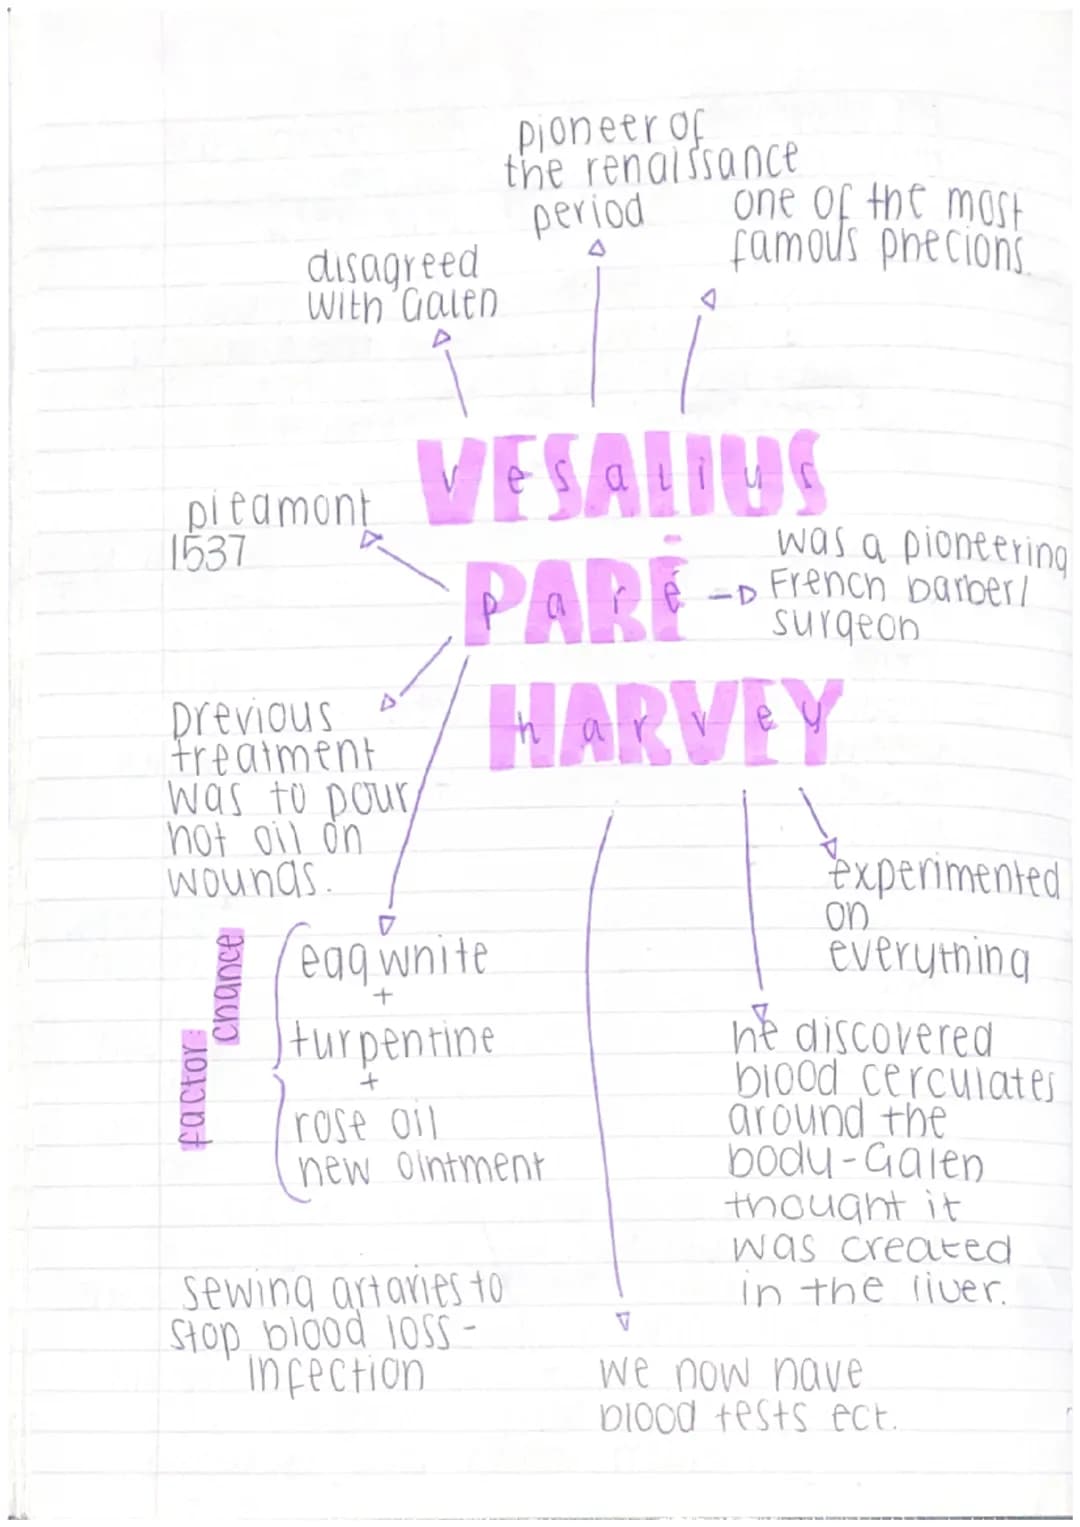 pioneer of
the renaissance
period
one of the most
famous phecions.
disagreed
with Galen
VESALIUS
vesalius
piedmont
1537
PARÉ
paré
was a pioneering
French barber/
surgeon
HARVEY
harvey
previous
treatment
was to pour
hot oil on
wounds.
factor:
chance
egg white
+
turpentine
+
rose oil
new ointment
experimented
on
everything
he discovered
blood cerculates
around the
body-Galen
thought it
was created
in the liver.
sewing artaries to
stop blood loss -
infection
we now have
blood tests ect.